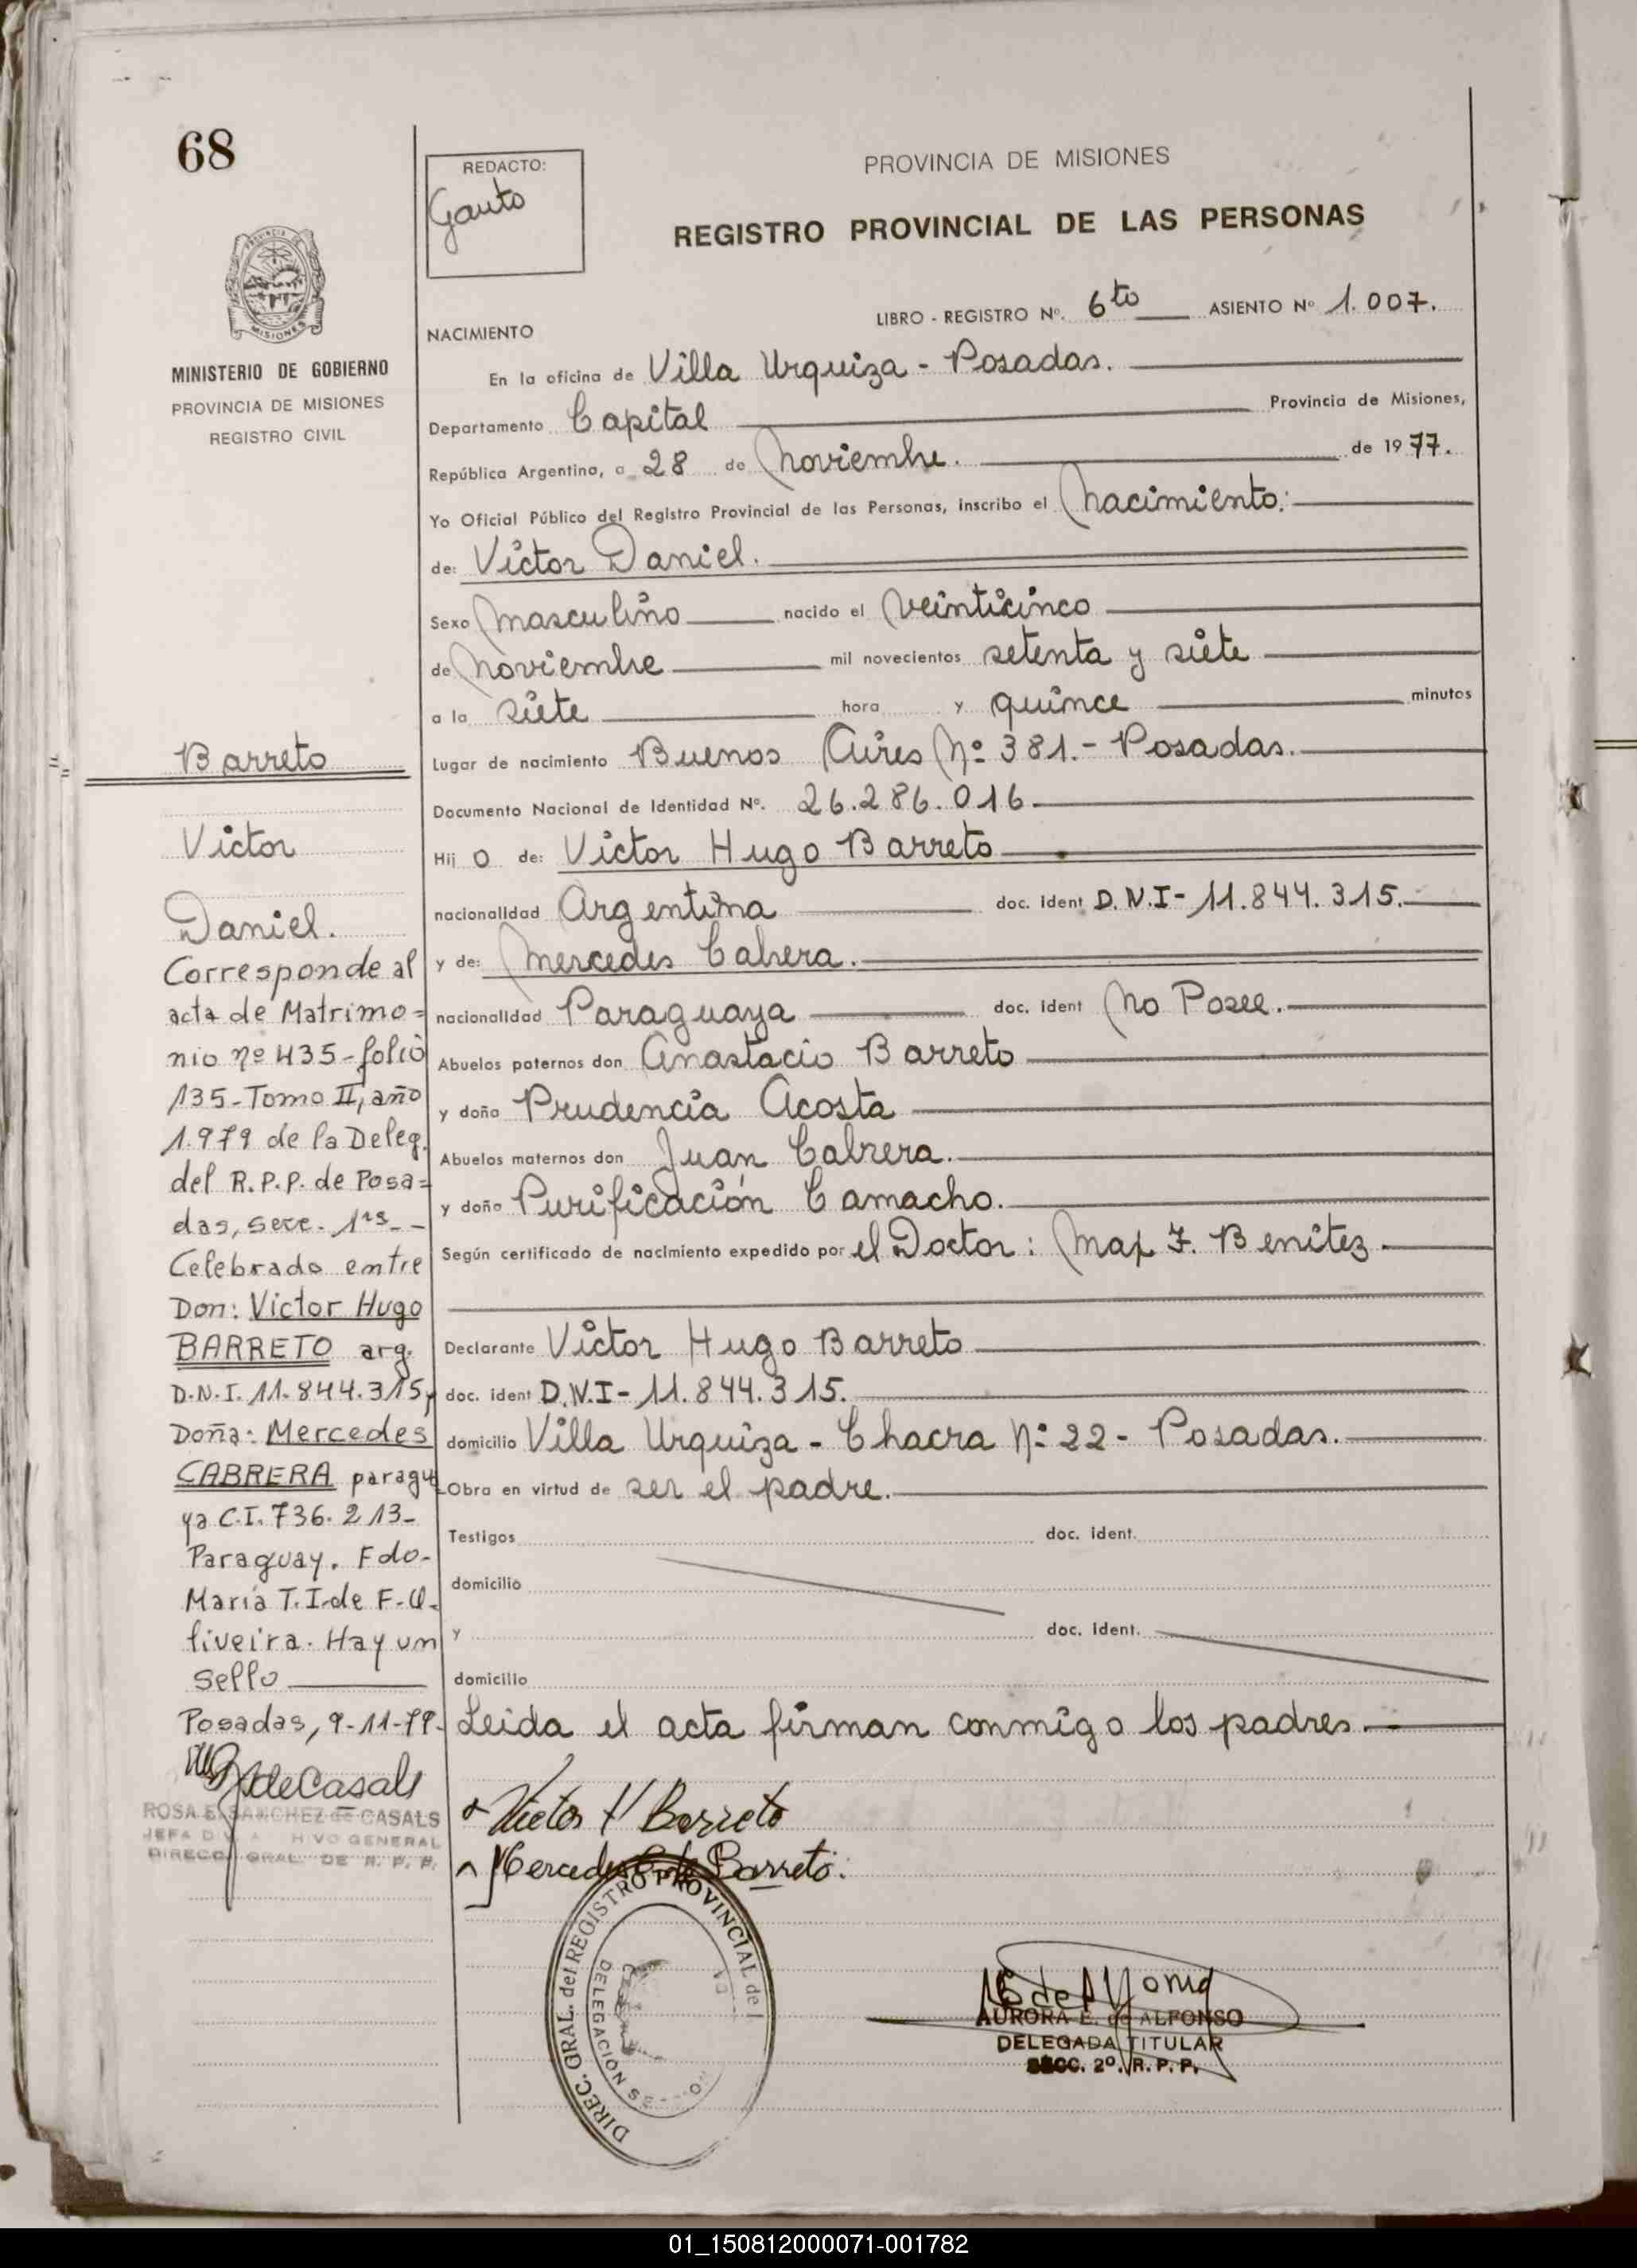 68
REDACTO:
Gauto
PROVINCIA DE MISIONES
REGISTRO PROVINCIAL DE LAS PERSONAS
LIBRO - REGISTRO Nº. 6to ASIENTO Nº 1.007.
MINISTERIO DE GOBIERNO
PROVINCIA DE MISIONES
REGISTRO CIVIL
NACIMIENTO
En la oficina de Villa Urquiza - Posadas.
Departamento Capital Provincia de Misiones,
República Argentina, a 28 de Noviembre. de 1977.
Yo Oficial Público del Registro Provincial de las Personas, inscribo el Nacimiento:
de: Víctor Daniel.
Sexo Masculino nacido el Veinticinco
de Noviembre mil novecientos setenta y siete
a la siete hora y quince minutos
Lugar de nacimiento Buenos Aires Nº 381.- Posadas.
Documento Nacional de Identidad Nº. 26.286.016
Hij o de: Víctor Hugo Barreto
nacionalidad Argentina doc. ident D.N.I- 11.844.315.
y de: Mercedes Cabrera.
nacionalidad Paraguaya doc. ident No Posee.
Abuelos paternos don Anastacio Barreto
y doña Prudencia Acosta
Abuelos maternos don Juan Cabrera.
y doña Purificación Camacho.
Según certificado de nacimiento expedido por el Doctor: Max F. Benítez
Declarante Víctor Hugo Barreto
doc. ident D.N.I- 11.844.315.
domicilio Villa Urquiza - Chacra Nº 22 - Posadas.
Obra en virtud de ser el padre.
Testigos doc. ident.
domicilio
y doc. ident.
domicilio
Leida el acta firman conmigo los padres.
Victor H Barreto
Mercedes C. de Barreto.
Barreto
Victor
Daniel.
Corresponde al
acta de Matrimo=
nio nº 435-folio
135-Tomo II, año
1.979 de la Deleg.
del R.P.P. de Posa=
das, Secc. 1ra -
Celebrado entre
Don: Victor Hugo
BARRETO arg.
D.N.I. 11.844.315 y
Doña: Mercedes
CABRERA paragu
ya C.I. 736.213-
Paraguay. Fdo-
María T. I. de F. O-
liveira. Hay un
sello
Posadas, 9-11-79-
de Casals
ROSA E. SANCHEZ de CASALS
JEFA DIV. ARCHIVO GENERAL
DIRECC. GRAL. DE R. P. P.
DIREC. GRAL. del REGISTRO PROVINCIAL de l
DELEGACIÓN
AURORA E. de ALFONSO
DELEGADA TITULAR
SECC. 2º. R. P. P.
01_150812000071-001782